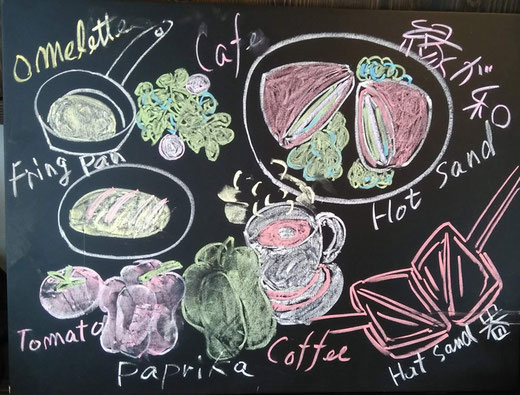 omelette
Cafe
Fring Pan
Hot Sand
Tomato
Paprika
Coffee
Hot Sand